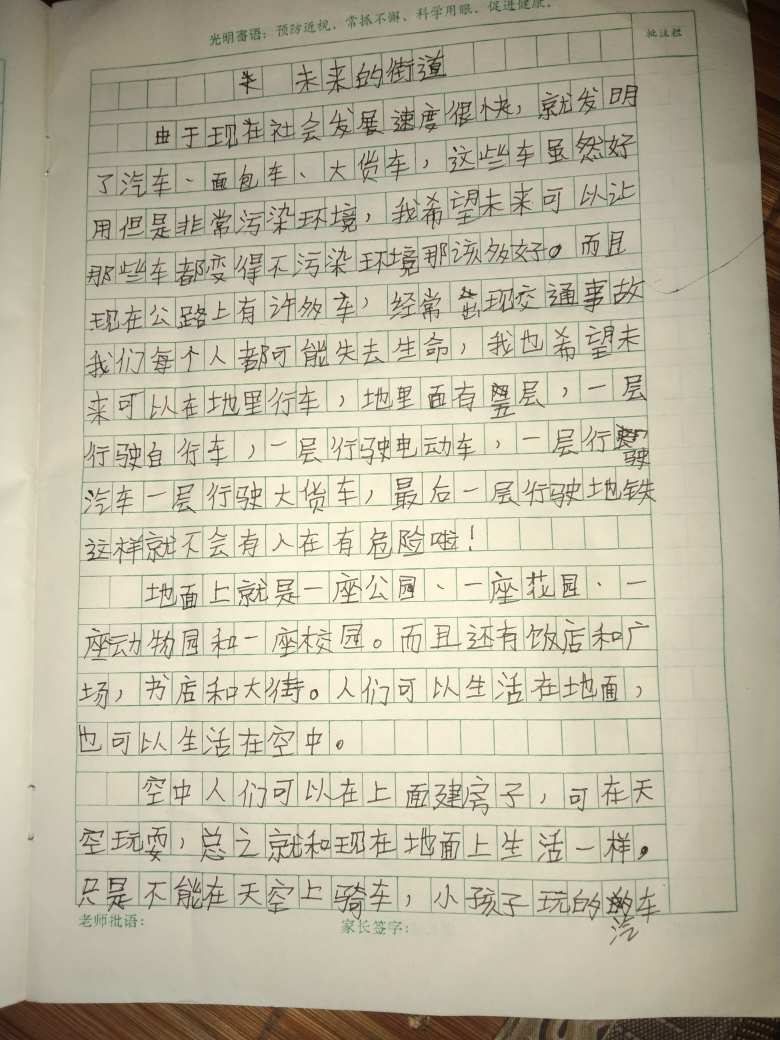 光明寄语：预防近视，常抓不懈、科学用眼，促进健康。
批注栏
未来的街道
由于现在社会发展速度很快，就发明
了汽车、面包车、大货车，这些车虽然好
用但是非常污染环境，我希望未来可以让
那些车都变得不污染环境那该多好。而且
现在公路上有许多车，经常出现交通事故
我们每个人都可能失去生命，我也希望未
来可以在地里行车，地里面有五层，一层
行驶自行车，一层行驶电动车，一层行驶
汽车一层行驶大货车，最后一层行驶地铁
这样就不会有人在有危险啦！
地面上就是一座公园、一座花园、一
座动物园和一座校园。而且还有饭店和广
场，书店和大街。人们可以生活在地面，
也可以生活在空中。
空中人们可以在上面建房子，可在天
空玩耍，总之就和现在地面上生活一样。
只是不能在天空上骑车，小孩子玩的汽车
老师批语：
家长签字：